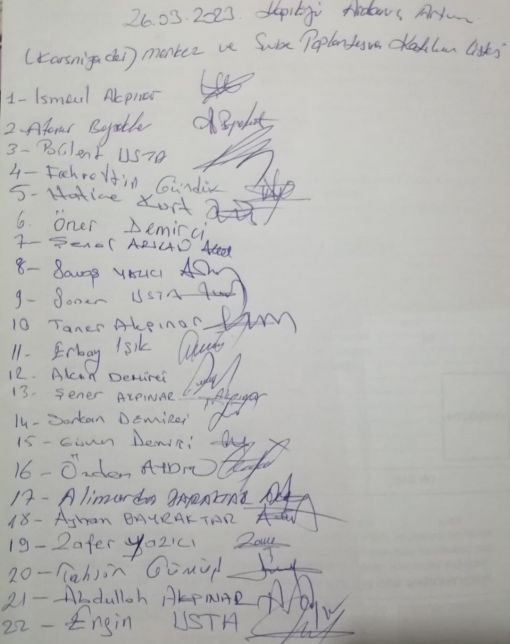 26.03.2023. Ardanuç Artvin
merkez ve Şube Toplantısına Katılım Listesi
1- İsmail Akpınar
2-
3- Bülent USTA
4- Fahrettin Gündür
5- Hatice Kurt
6. Öner Demirci
7- Şener
8- Savaş YAZICI
9- Soner USTA
10 Taner Akpınar
11- Erbay Işık
12. Akın Demirci
13- Şener AKPINAR
14- Serkan DEMİRCİ
15- Demirci
16- Özden AYDIN
17- Alimurdan BARAKTAR
18- Ayhan BAYRAKTAR
19- Zafer yazıcı
20- Tahsin Gümüş
21- Abdullah AKPINAR
22- Engin USTA